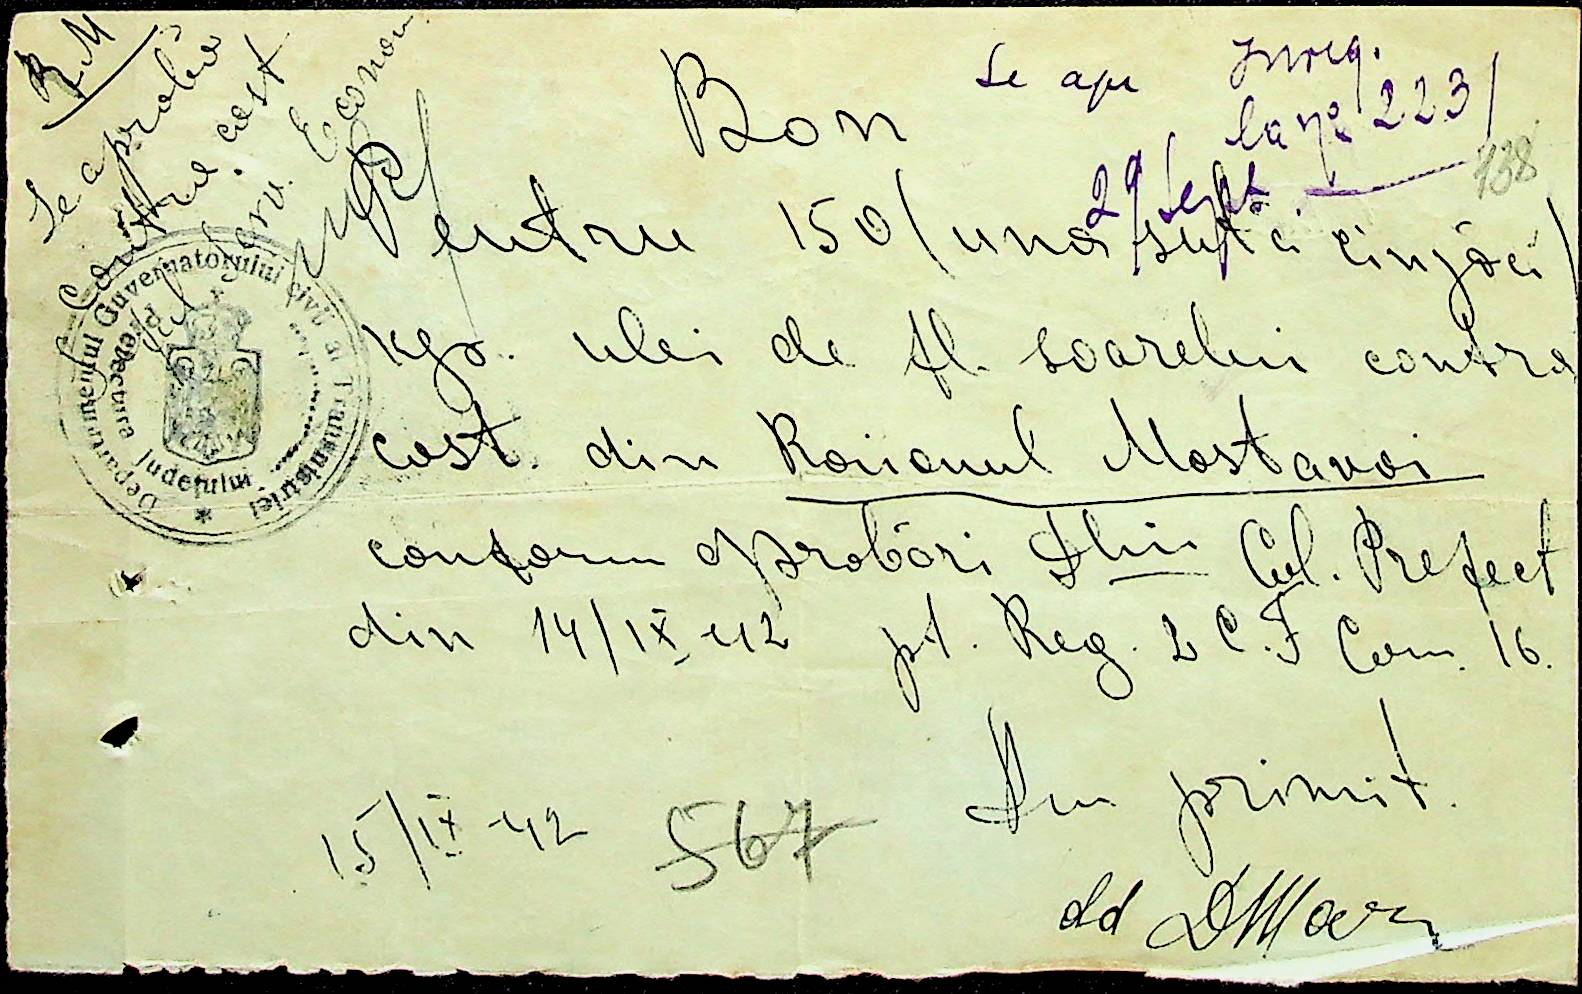 RM
Se aprobă
contra cost
Șef Serv. Econom.
Bon
Se apr
Inreg.
la no 223/
29/Sept.
138
Pentru 150/una sută cinzăci/
kgr. ulei de fl. soarelui contra
cost din Raionul Mostavoi
conform aprobări Dlui Col. Prefect
din 14/IX-42 pt. Reg. 2 C.F Com. 16.
Am primit.
15/IX-42
567
Departamentul Guvernatorului Civil al Transnistriei
Prefectura Județului